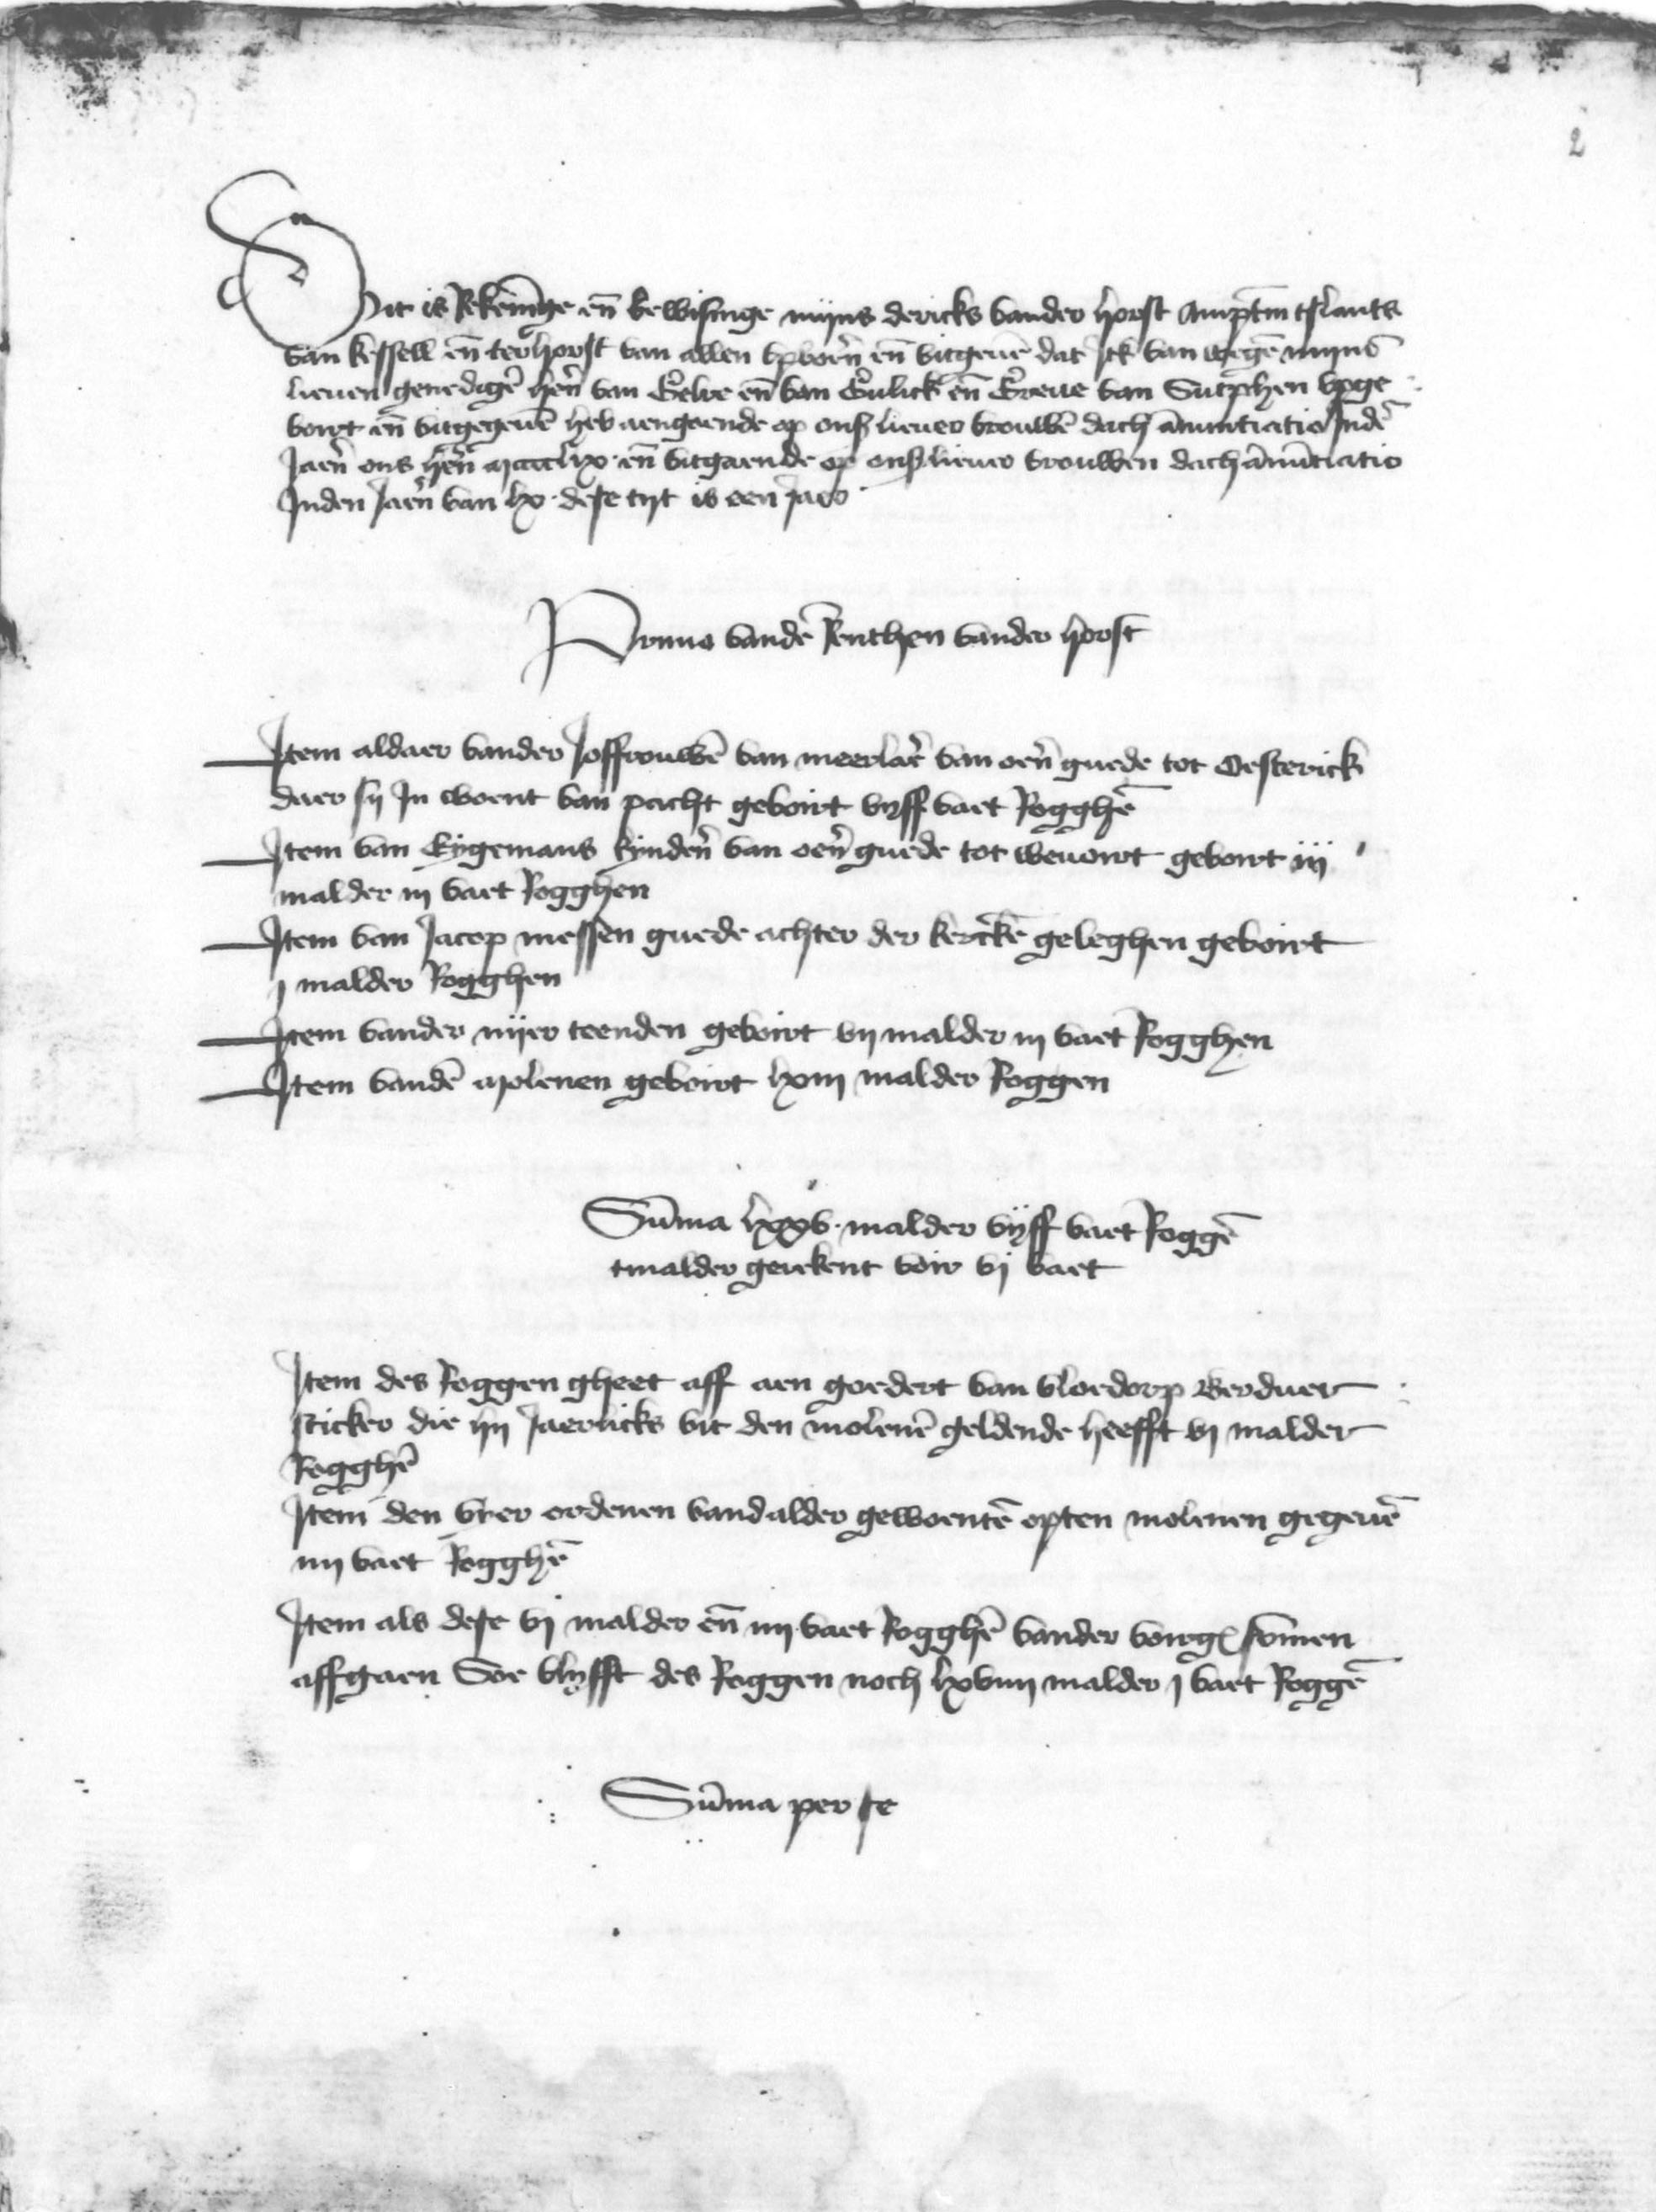 2
Dit is Rekeninge en̄ bewisinge mijns dericks vander horst Amptm̄ tslants
van kessell en̄ ter horst van allen vpboern̄ en̄ vitgeuē dat Ick van wegē mijns
lieuen genedigē hern̄ van Gelre en̄ van Gulick en̄ Greue van Sutphen vpge
boirt en̄ vitgegeuē heb aengaende op onser lieuer vrouwē dach an̄untiatio Indē
Jaern̄ ons hern̄ mcccclix en̄ vitgaende op onser lieuer vrouwen dach an̄untiatio
Inden Jaern̄ van lx dese tijt is een Jaer
Primo vandē Renthen vander horst
Item aldaer vander Joffrouwē van meerlar̄ van oern̄ guede tot Oesterick
daer sij In woent van pacht geboirt vijff vaet Rogghē
Item van Eygemans kyndern̄ van oern̄ guede tot weuoirt geboirt iij
malder iij vaet Rogghen
Item van Jacop messen guede achter der kerckē geleghen geboirt
j malder Rogghen
Item vander nijer teenden geboirt vij malder iij vaet Rogghen
Item vandē molenen geboirt lxiij malder Roggen
Sūma lxxv malder vijff vaet Roggē
tmalder gerekent voir vj vaet
Item des Roggen gheet aff aen goedert van vlordorp Berduer
sticker die hij Jaerlicks vit den molenē geldende heefft vj malder
Rogghē
Item den vier oerdenen vandalder gewoentē opten molenen gegeuē
iiij vaet Rogghē
Item als dese vj malder en̄ iiij vaet Rogghē vander voirg. som̄en
affgaen Soe blijfft des Roggen noch lxviiij malder j vaet Roggē
Sūma per se